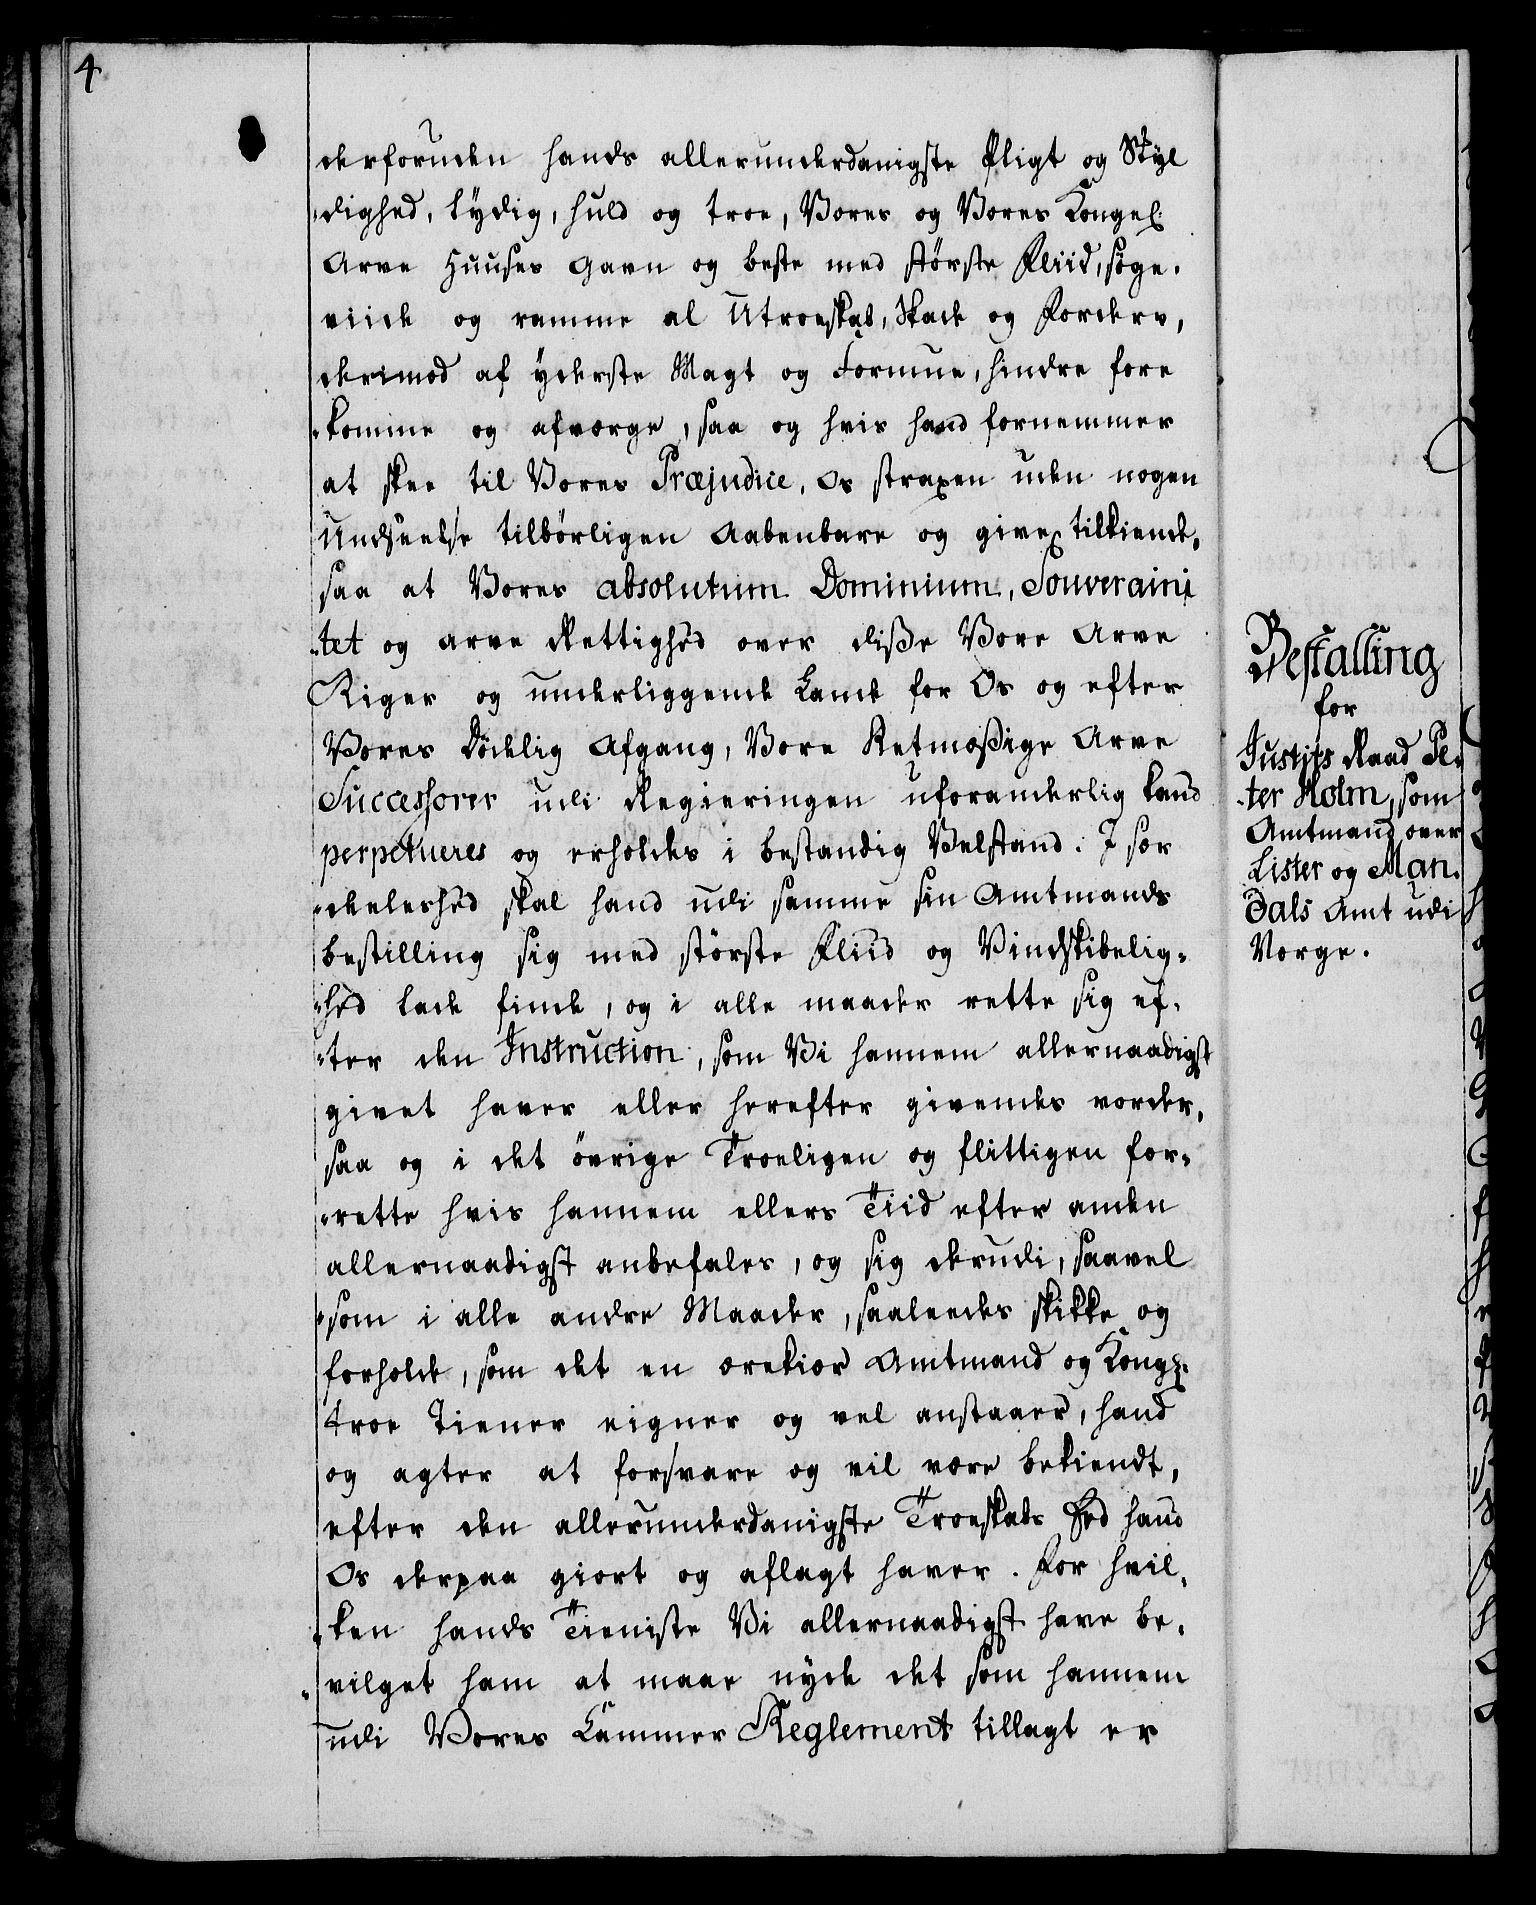 4
derforuden hands allerunderdanigste Pligt og Skyl
-dighed, lydig, huld og troe, Vores og Vores Kongel.
Arve Huuses gavn og beste med største Fliid, søge.
viide og ramme al Utroeskab, Skade og Forderv,
derimod af yderste Magt og Formue, hindre fore
-komme og afværge, saa og hvis hand fornemmer
at skee til Vores Præjudice, Os straxen uden nogen
Undseelse tilbørligen Aabenbare og gives tilkiende,
saa at Vores absolutum Dominium, Souveraini
-tet og arve Rettighed over disse Vore Arve
Riger og underliggende Lande for Os og efter
Vores Dödelig Afgang, Vore Retmæssige Arve
Successorer udi Regieringen uforanderlig kand
perpetueres og erholdes i bestandig Velstand. I sær
-deleshed skal hand udi samme sin Amtmands
bestilling sig med störste Fliid og Vindskibelig-
-hed lade finde, og i alle maader rette sig ef-
-ter den Instruction, som Vi hannem allernaadigst
givet haver eller herefter givendes vorder,
saa og i det övrige Troeligen og flittigen for-
-rette hvis hannem ellers Tiid efter anden
allernaadigst anbefales, og sig derudi, saavel
som i alle andre Maader, saaleedes skikke og
forholde, som det en ærekiær Amtmand og Kongl.
troe Tiener eigner og vel anstaaer, hand
og agter at forsvare og vil være bekiendt,
efter den allerunderdanigste Troeskabs Eed hand
Os derpaa giort og aflagt haver. For hvil-
-ken hands Tieniste Vi allernaadigst have be-
-vilget ham at maae nyde det som hannem
udi Vores Cammer Reglement tillagt er
Bestalling
for
Justits Raad Pe-
-ter Holm, som
Amtmand over
Lister og Man-
dals Amt udi
Norge.